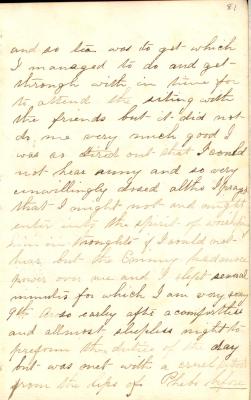 81
and so tea was to get which
I managed to do and get
through with in time for
to attend the siting with
the friends but it did not
do me very much good I
was so tired out that I could
not hear any and so very
unwillingly dosed altho I prayd
that I might not and might
enter into the spirit of worship
in thoughts if I could not
hear but the Enimy had more
power over me and I slept several
minutes for which I am very sorry
9th Arose earley after a comfortless
and allmost sleepless night to
preform the duties of the day
but was met with a cruel
from the lips of Phebe